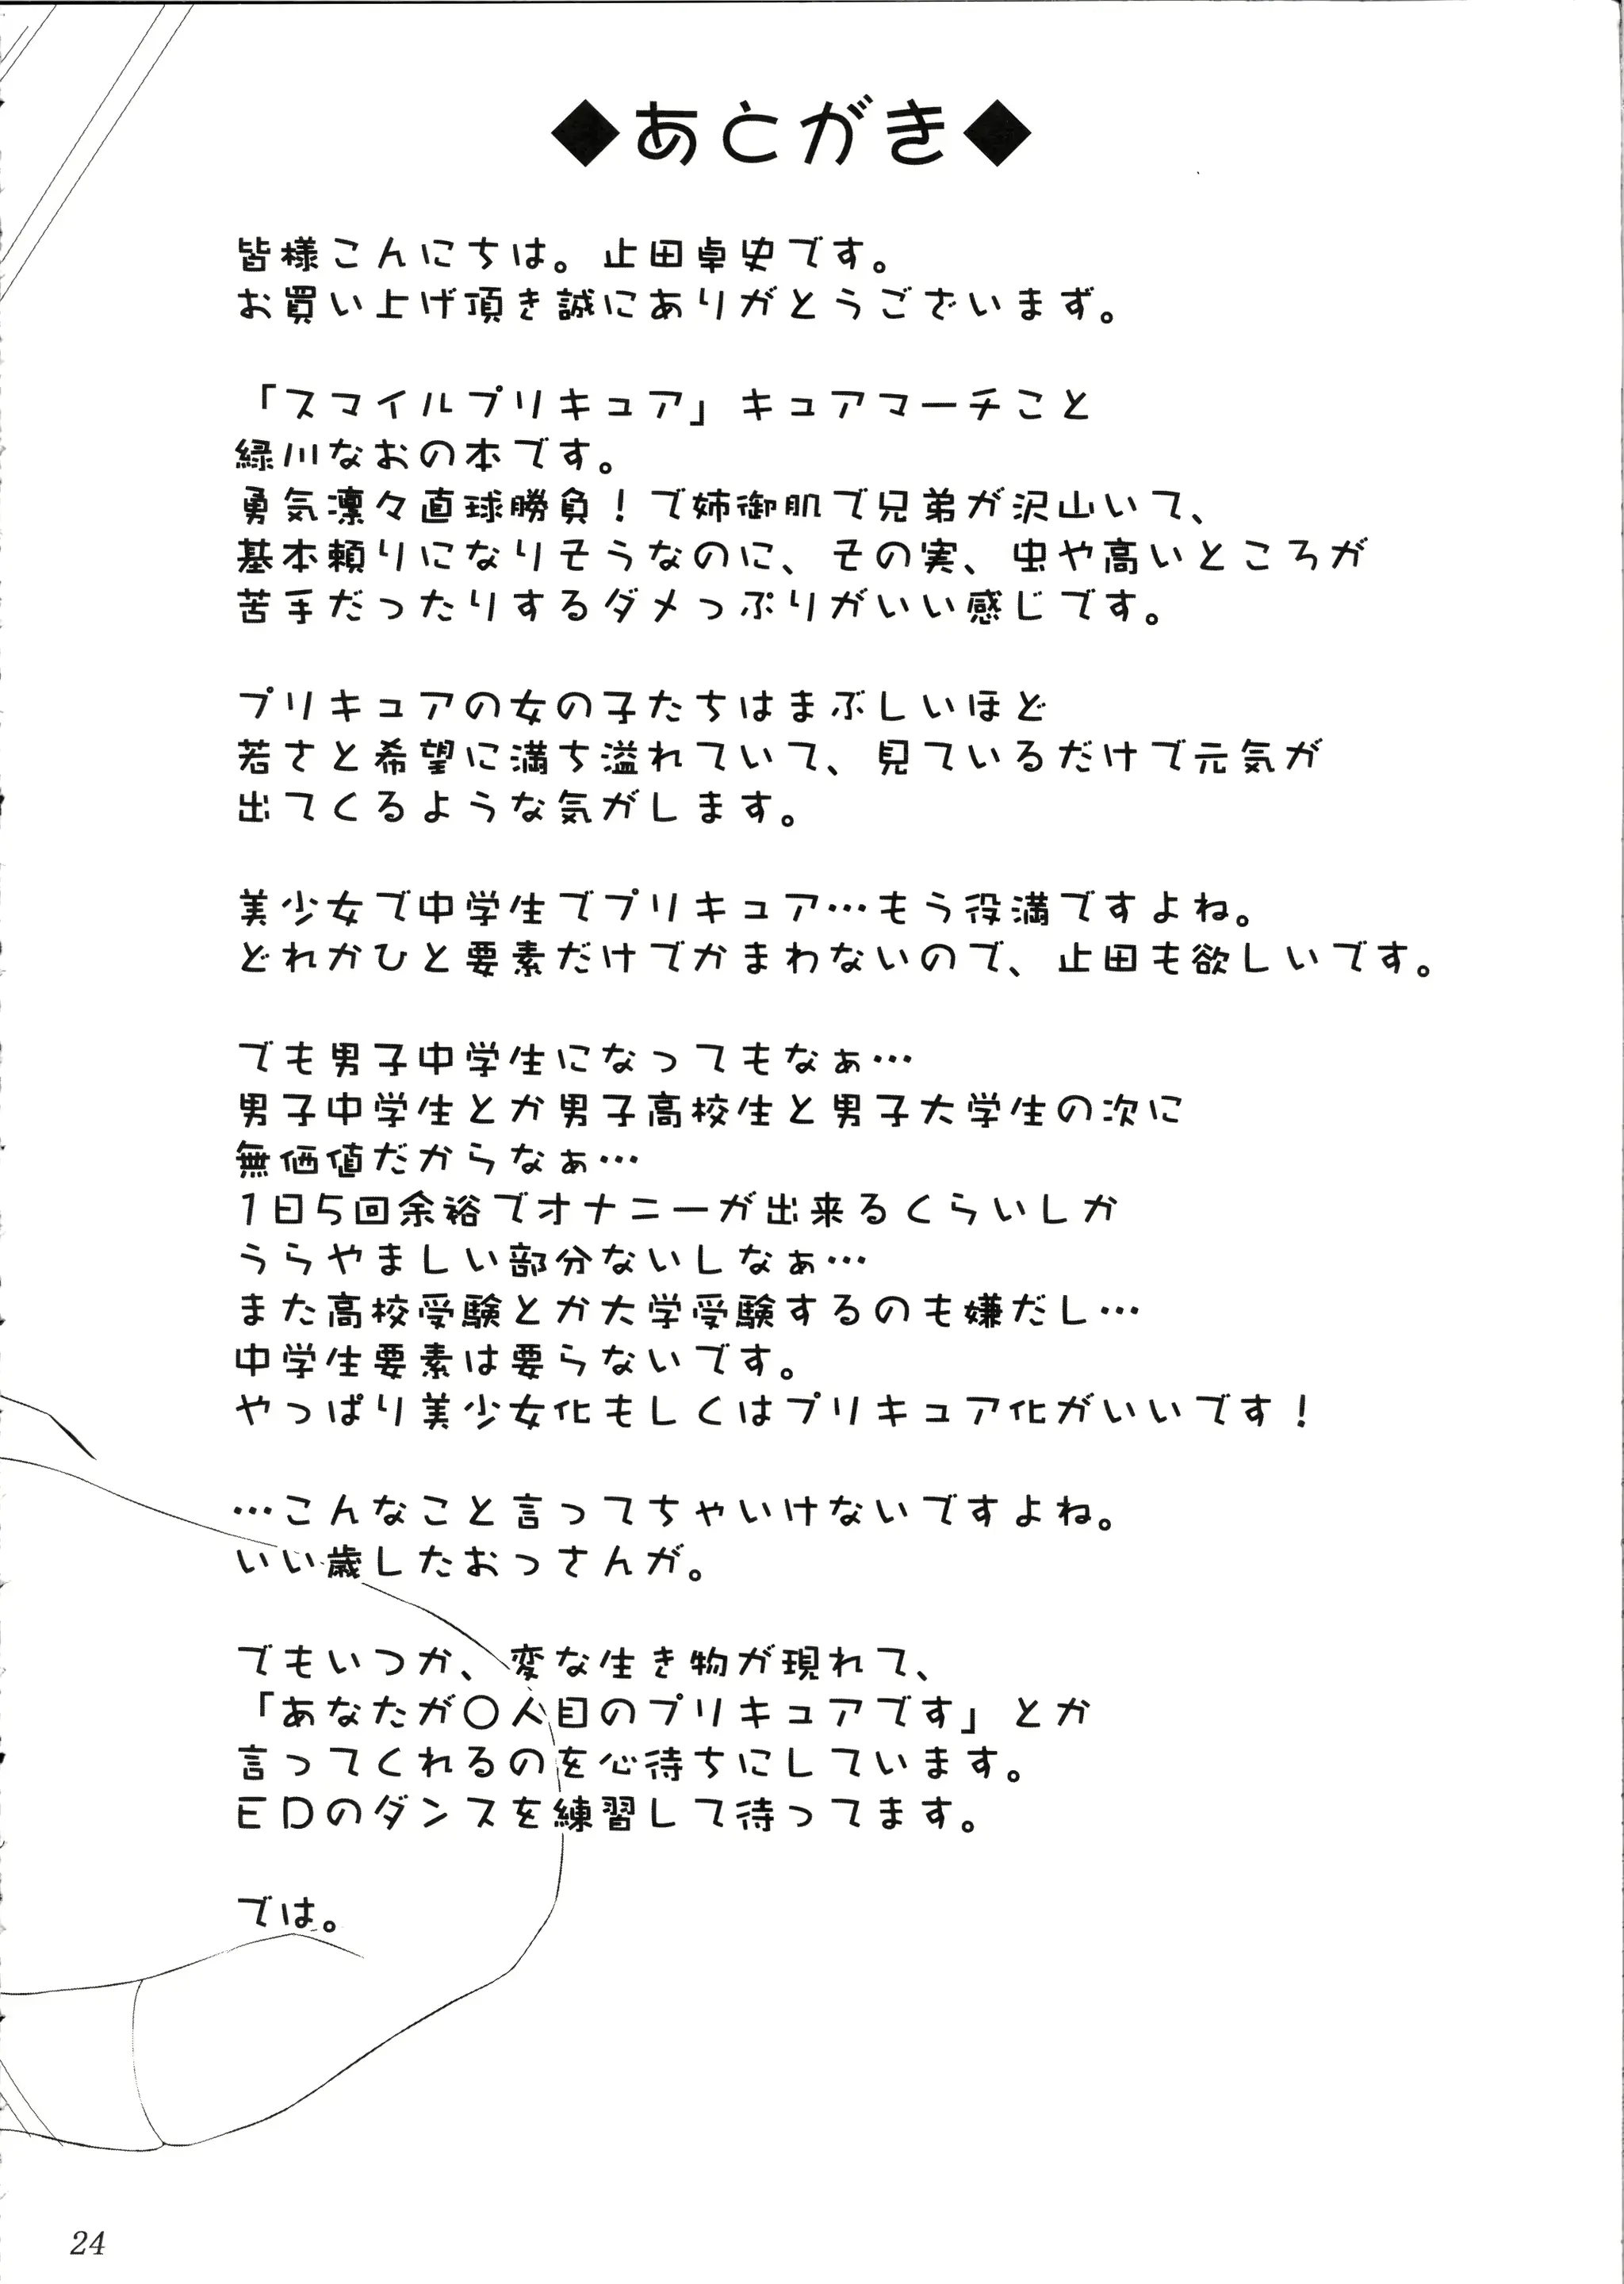 ◆あとがき◆
皆様こんにちは。止田卓史です。
お買い上げ頂き誠にありがとうございまず。
「スマイルプリキュア」キュアマーチこと
緑川なおの本です。
勇気凛々直球勝負！で姉御肌で兄弟が沢山いて、
基本頼りになりそうなのに、その実、虫や高いところが
苦手だったりするダメっぷりがいい感じです。
プリキュアの女の子たちはまぶしいほど
若さと希望に満ち溢れていて、見ているだけで元気が
出てくるような気がします。
美少女で中学生でプリキュア…もう役満ですよね。
どれかひと要素だけでかまわないので、止田も欲しいです。
でも男子中学生になってもなぁ…
男子中学生とか男子高校生と男子大学生の次に
無価値だからなぁ…
1日5回余裕でオナニーが出来るくらいしか
うらやましい部分ないしなぁ…
また高校受験とか大学受験するのも嫌だし…
中学生要素は要らないです。
やっぱり美少女化もしくはプリキュア化がいいです！
…こんなこと言ってちゃいけないですよね。
いい歳したおっさんが。
でもいつか、変な生き物が現れて、
「あなたが〇人目のプリキュアです」とか
言ってくれるのを心待ちにしています。
EDのダンスを練習して待ってます。
では。
24